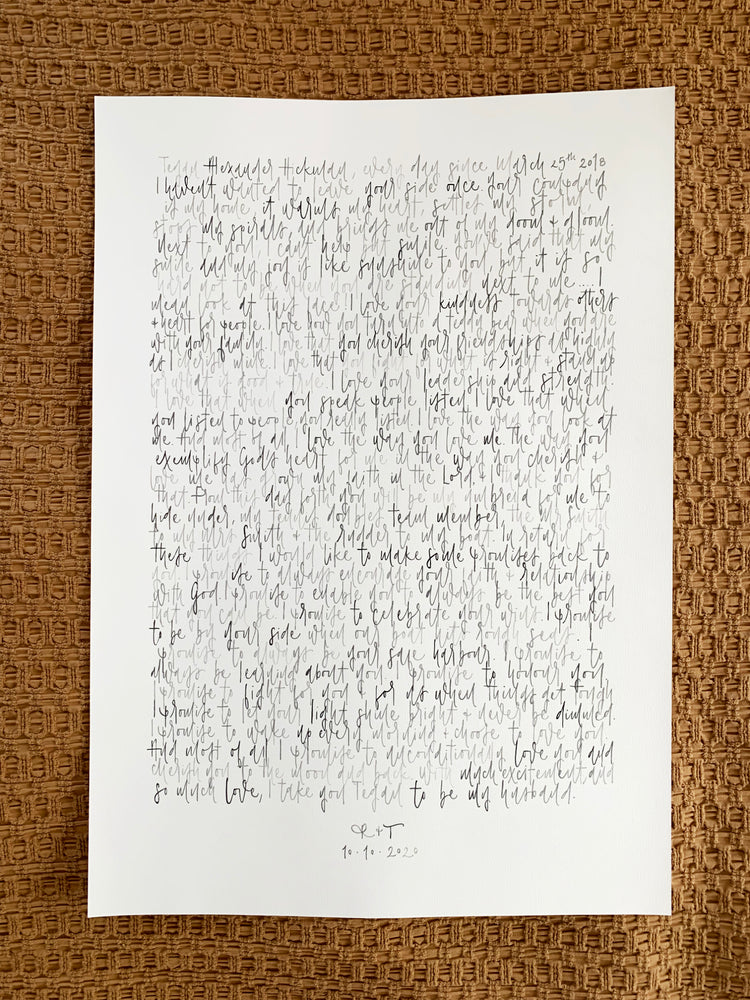 Alexander Hickman, every day since March 25th 2018
I haven't wanted to leave your side once. Your company
is my home, it warms my heart, settles my storm
stops my spirals, and brings me out of my doom & gloom.
Next to you I can't help but smile, you've said that my
smile and my joy is like sunshine to you but it is so
hard not to be when you are standing next to me.... I
mean look at that face! I love your kindness towards others
& heart for people. I love how you turn into a teddy bear when you are
with your family. I love that you cherish your friendships as highly
as I cherish mine. I love that you what is right & stand up
for what is good & true. I love your leadership and strength.
I love that when you speak people listen. I love that when
you listen to people you really listen. I love the way you look at
me. And most of all I love the way you love me. The way you
exemplify God's heart for me in the way you cherish &
love me has my faith in the Lord & thank you for
that. From this day forth you will be my umbrella for me to
hide under, my tennis doubles team member, the Mr Smith
to my Mrs Smith & the rudder to my boat. In return for
these things I would like to make some promises back to
you. I promise to always encourage your faith & relationship
with God. I promise to enable you to always be the best you
that you can be. I promise to celebrate your wins. I promise
to be by your side when our boat hits rough seas. I
promise to always be your safe harbour. I promise to
always be learning about you. I promise to honour you.
I promise to fight for you & for us when things get tough.
I promise to let your light shine bright & never be dimmed.
I promise to wake up every morning & choose to love you.
And most of all I promise to unconditionally love you and
cherish you to the moon and back. With much excitement and
so much love, I take you to be my husband.
R + T
10.10.2020